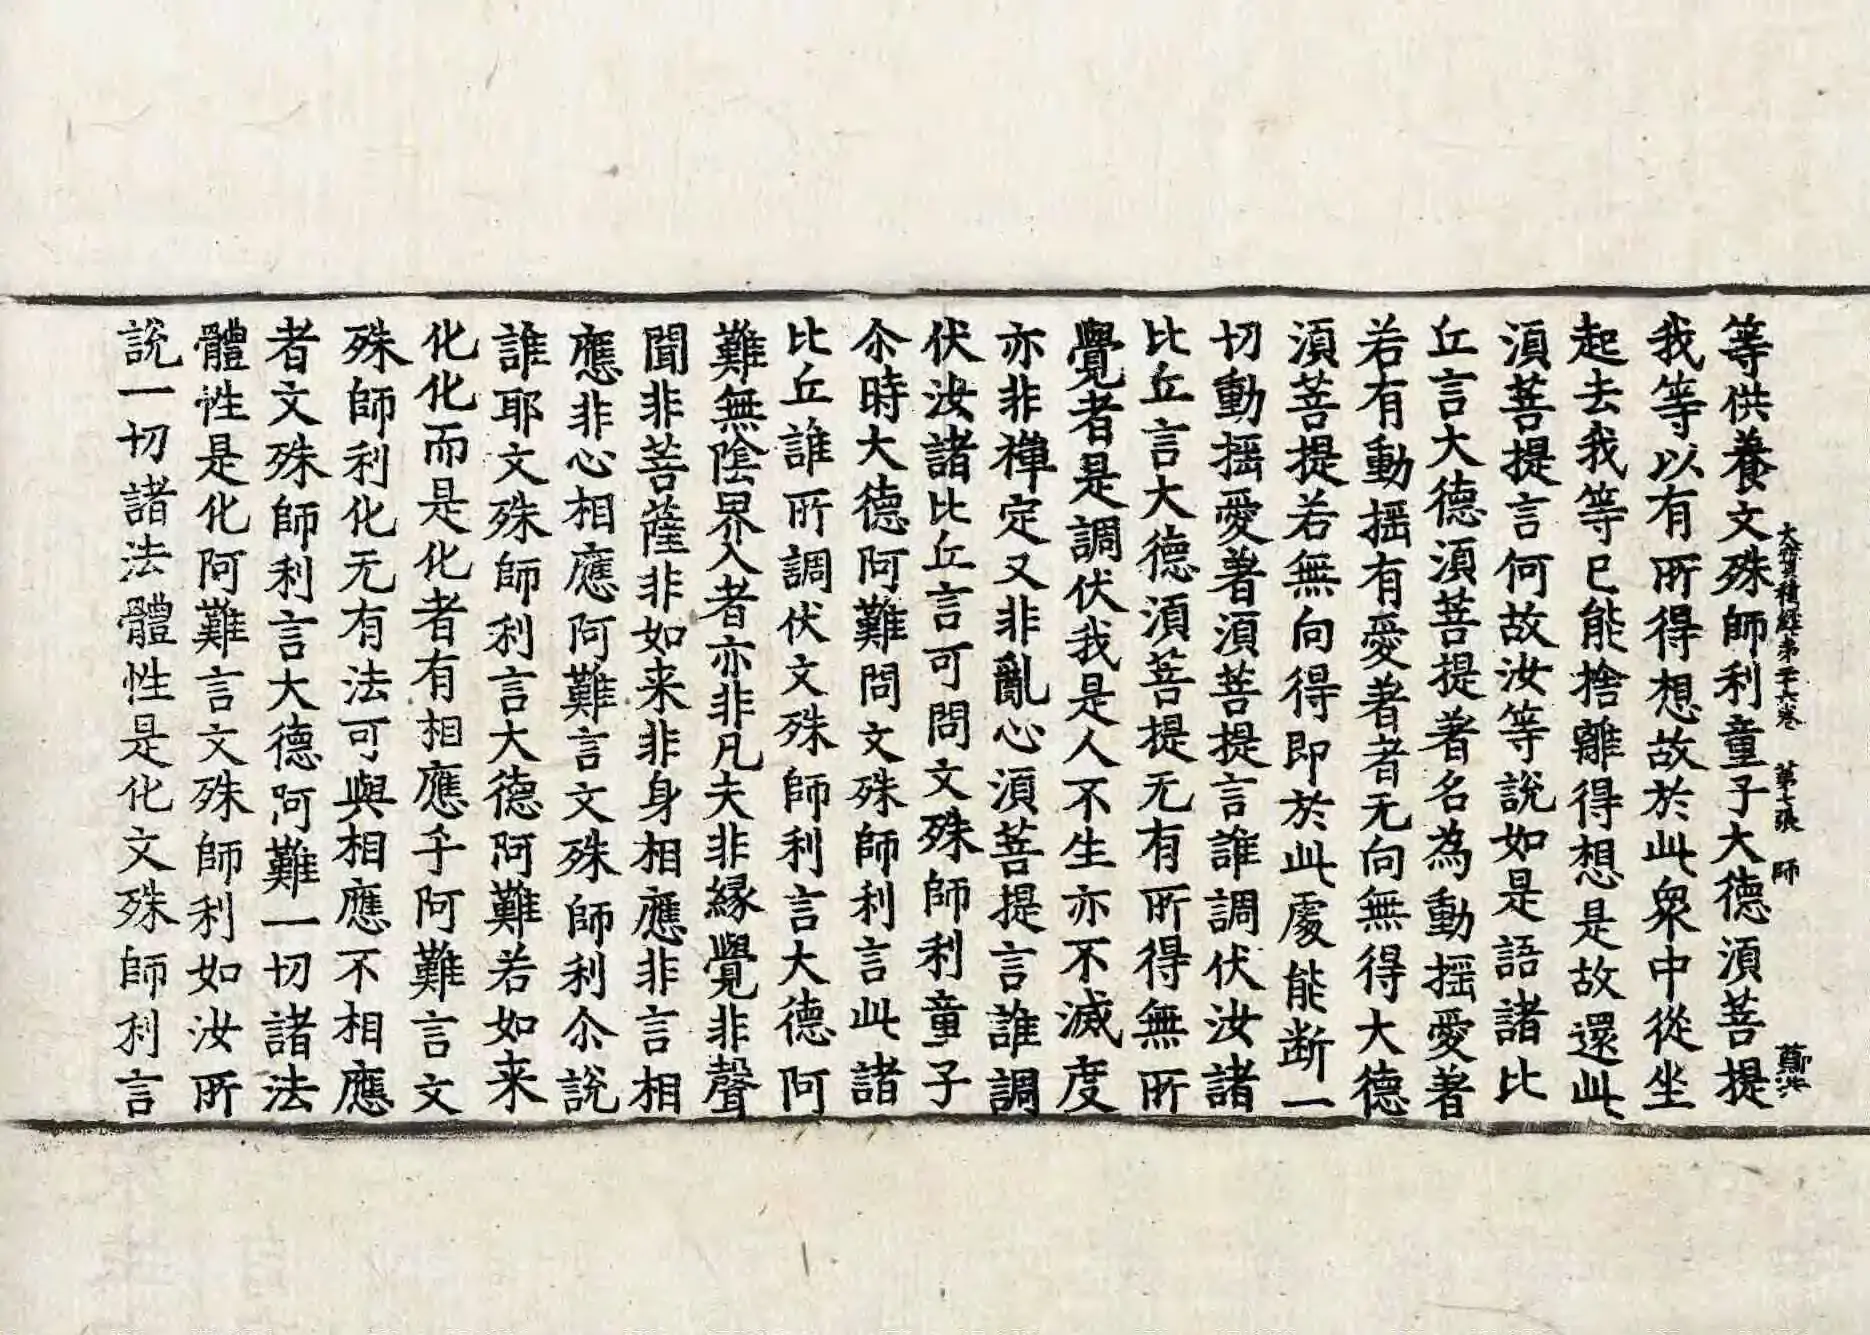 大寶積經第二十六卷 第七張 師
等供養文殊師利童子大德湏菩提
我等以有所得想故於此衆中從坐
起去我等已能捨離得想是故還此
湏菩提言何故汝等說如是語諸比
丘言大德湏菩提著名為動揺愛著
若有動揺有愛著者无向無得大德
湏菩提若無向得即於此處能断一
切動揺愛著湏菩提言誰調伏汝諸
比丘言大德湏菩提无有所得無所
覺者是調伏我是人不生亦不滅度
亦非禪定又非亂心湏菩提言誰調
伏汝諸比丘言可問文殊師利童子
尒時大德阿難問文殊師利言此諸
比丘誰所調伏文殊師利言大德阿
難無陰界入者亦非凡夫非縁覺非聲
聞非菩薩非如来非身相應非言相
應非心相應阿難言文殊師利尒說
誰耶文殊師利言大德阿難若如来
化化而是化者有相應乎阿難言文
殊師利化无有法可與相應不相應
者文殊師利言大德阿難一切諸法
體性是化阿難言文殊師利如汝所
說一切諸法體性是化文殊師利言